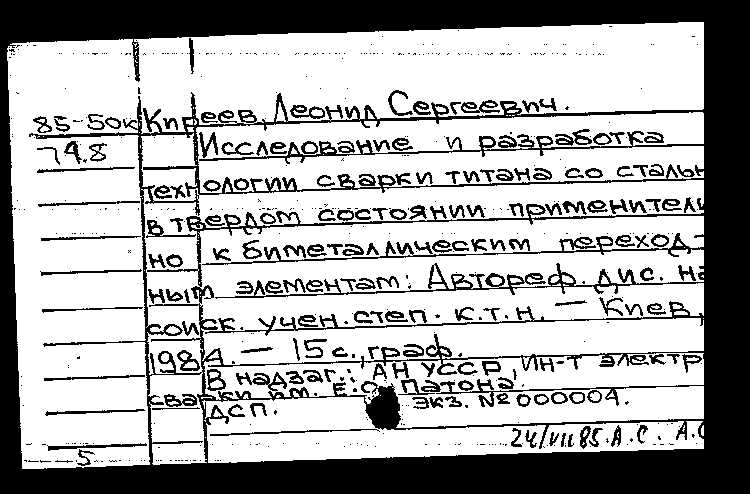 85-50к Киреев, Леонид Сергеевич.
74.8 Исследование и разработка
технологии сварки титана со сталью
в твердом состоянии применитель
но к биметаллическим переход-
ным элементам: Автореф. дис. на
соиск. учен. степ. к.т.н. — Киев,
1984. — 15 с., граф.
В надзаг.: АН УССР, Ин-т электр
сварки им. Е.О. Патона.
ДСП. экз. №000004.
24/VII 85. А.С.
5